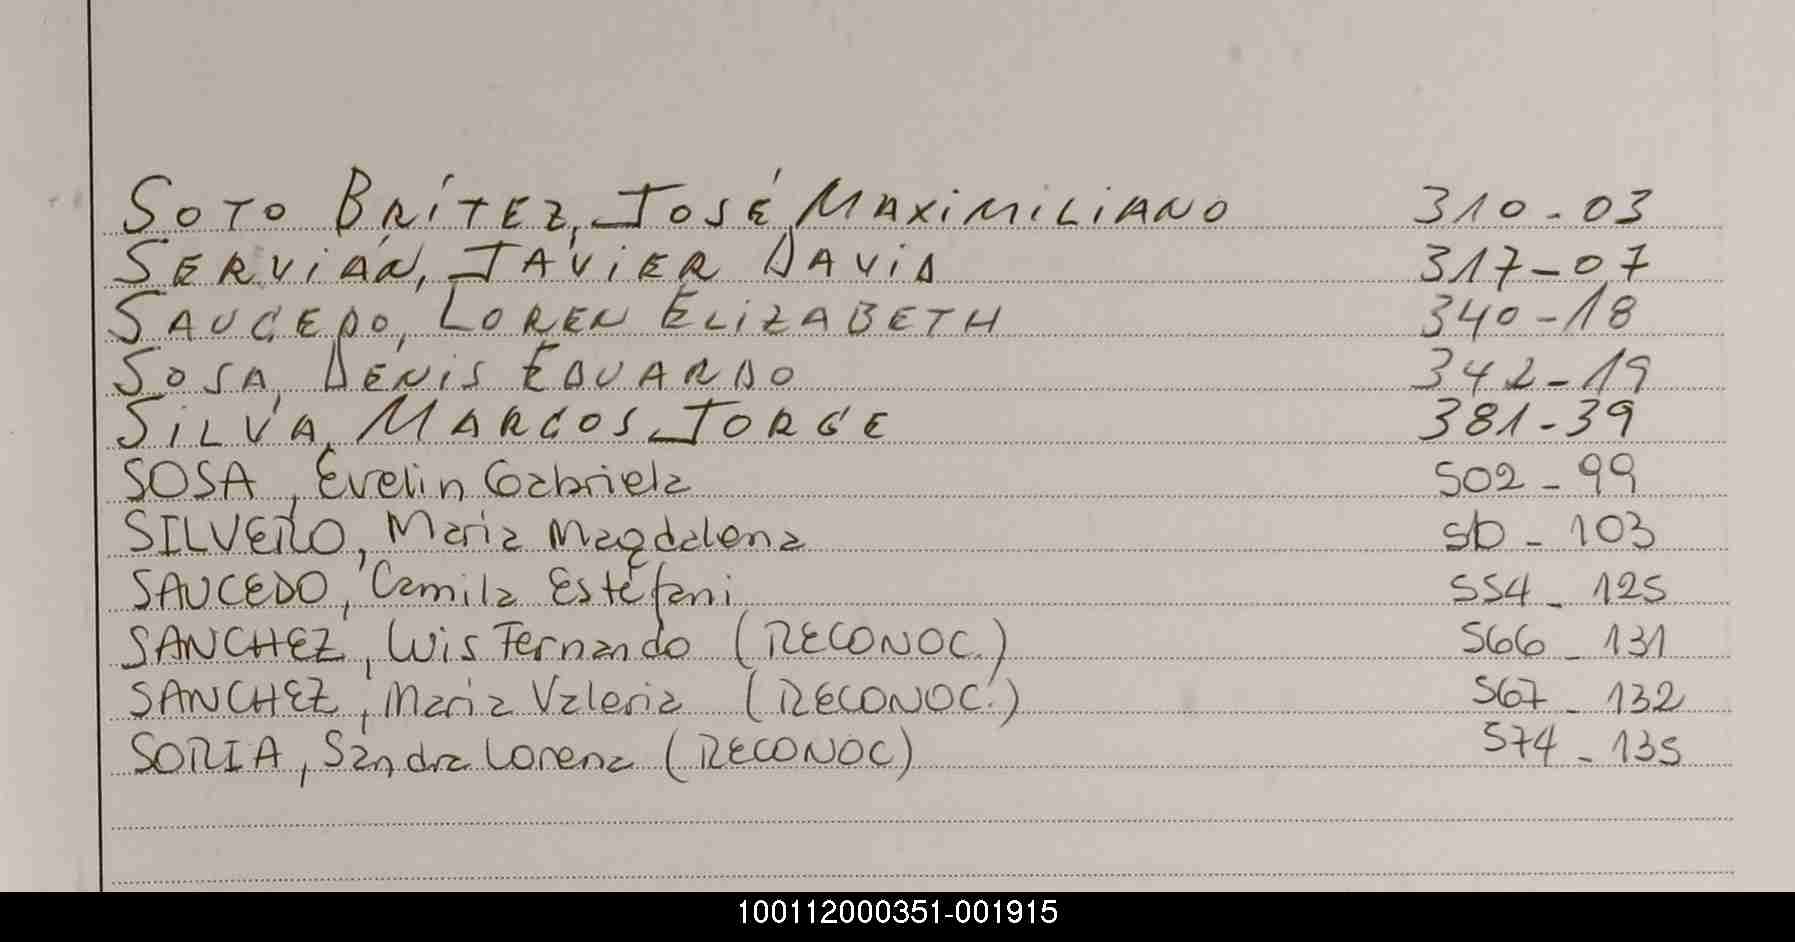 SOTO BRÍTEZ, JOSÉ MAXIMILIANO 310-03
SERVIÁN, JAVIER DAVID 317-07
SAUCEDO, LOREN ELIZABETH 340-18
SOSA, DENIS EDUARDO 342-19
SILVA, MARCOS JORGE 381-39
SOSA, Evelin Gabriela 502-99
SILVERO, Maria Magdalena 103
SAUCEDO, Camila Estefani 554-125
SANCHEZ, Luis Fernando (RECONOC.) 566-131
SANCHEZ, Maria Valeria (RECONOC.) 567-132
SORIA, Sandra Lorena (RECONOC) 574-135
100112000351-001915